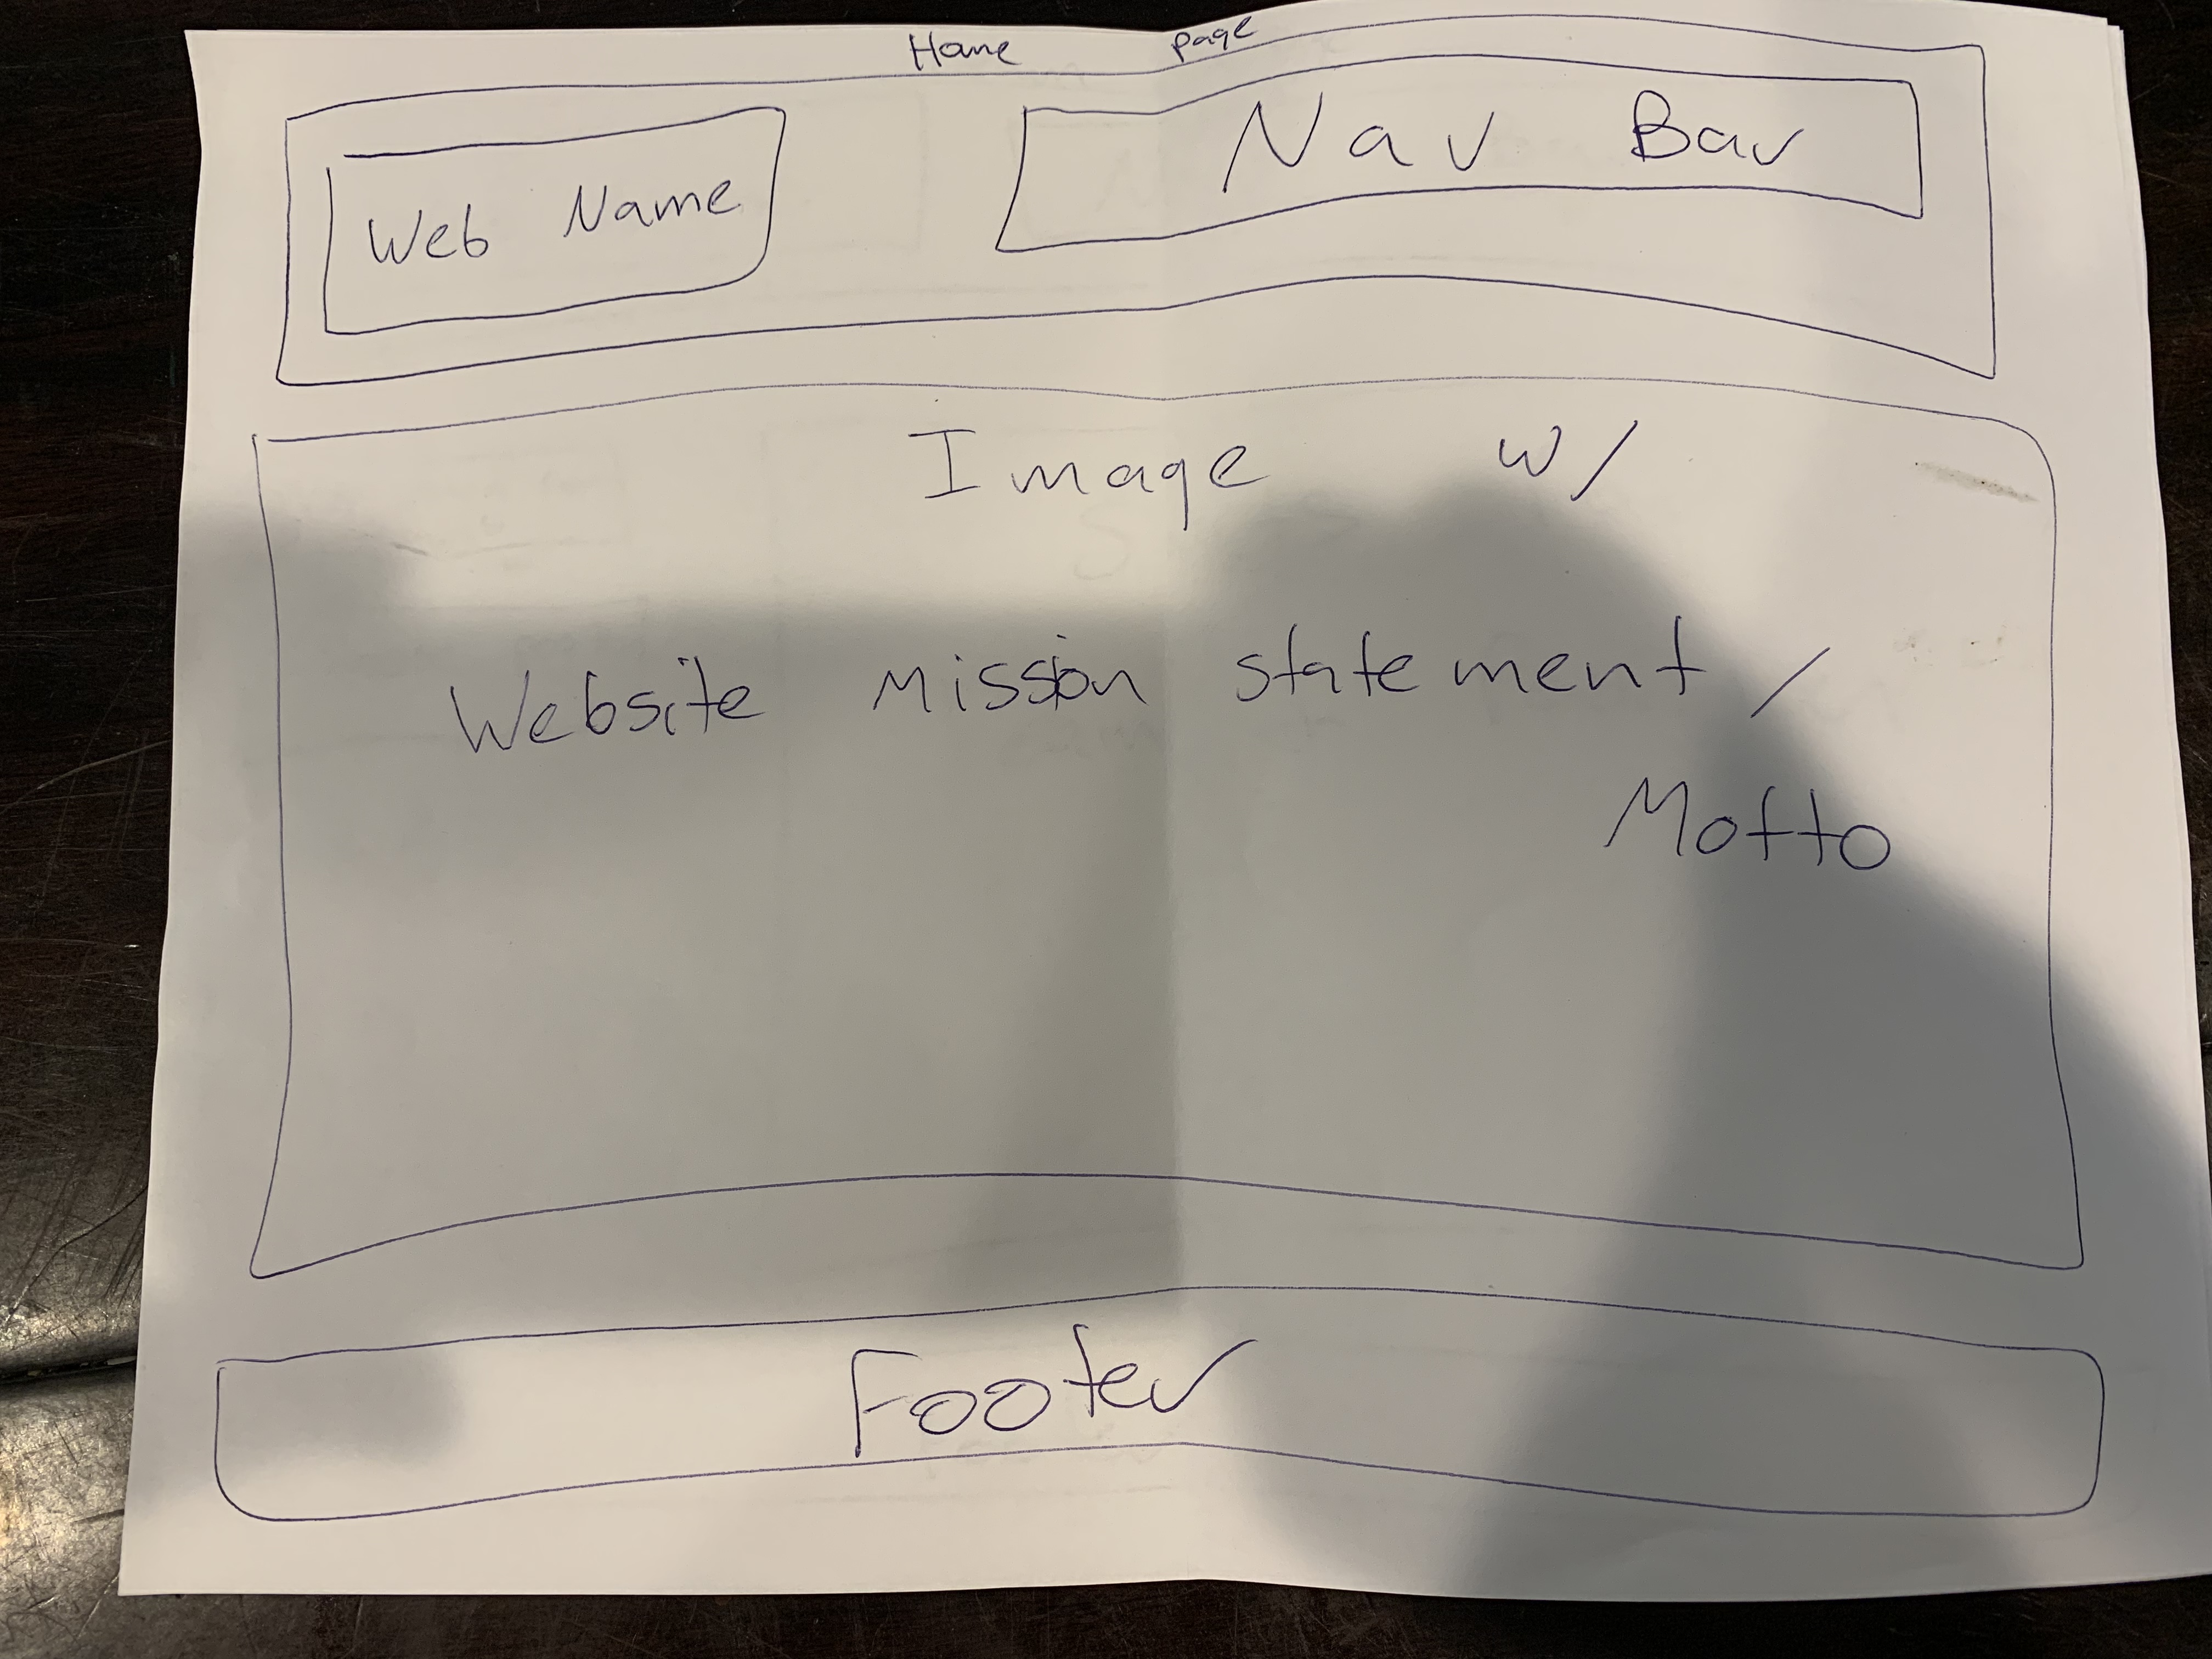 Home Page
Web Name
Nav Bar
Image w/
Website Mission statement /
Motto
Footer